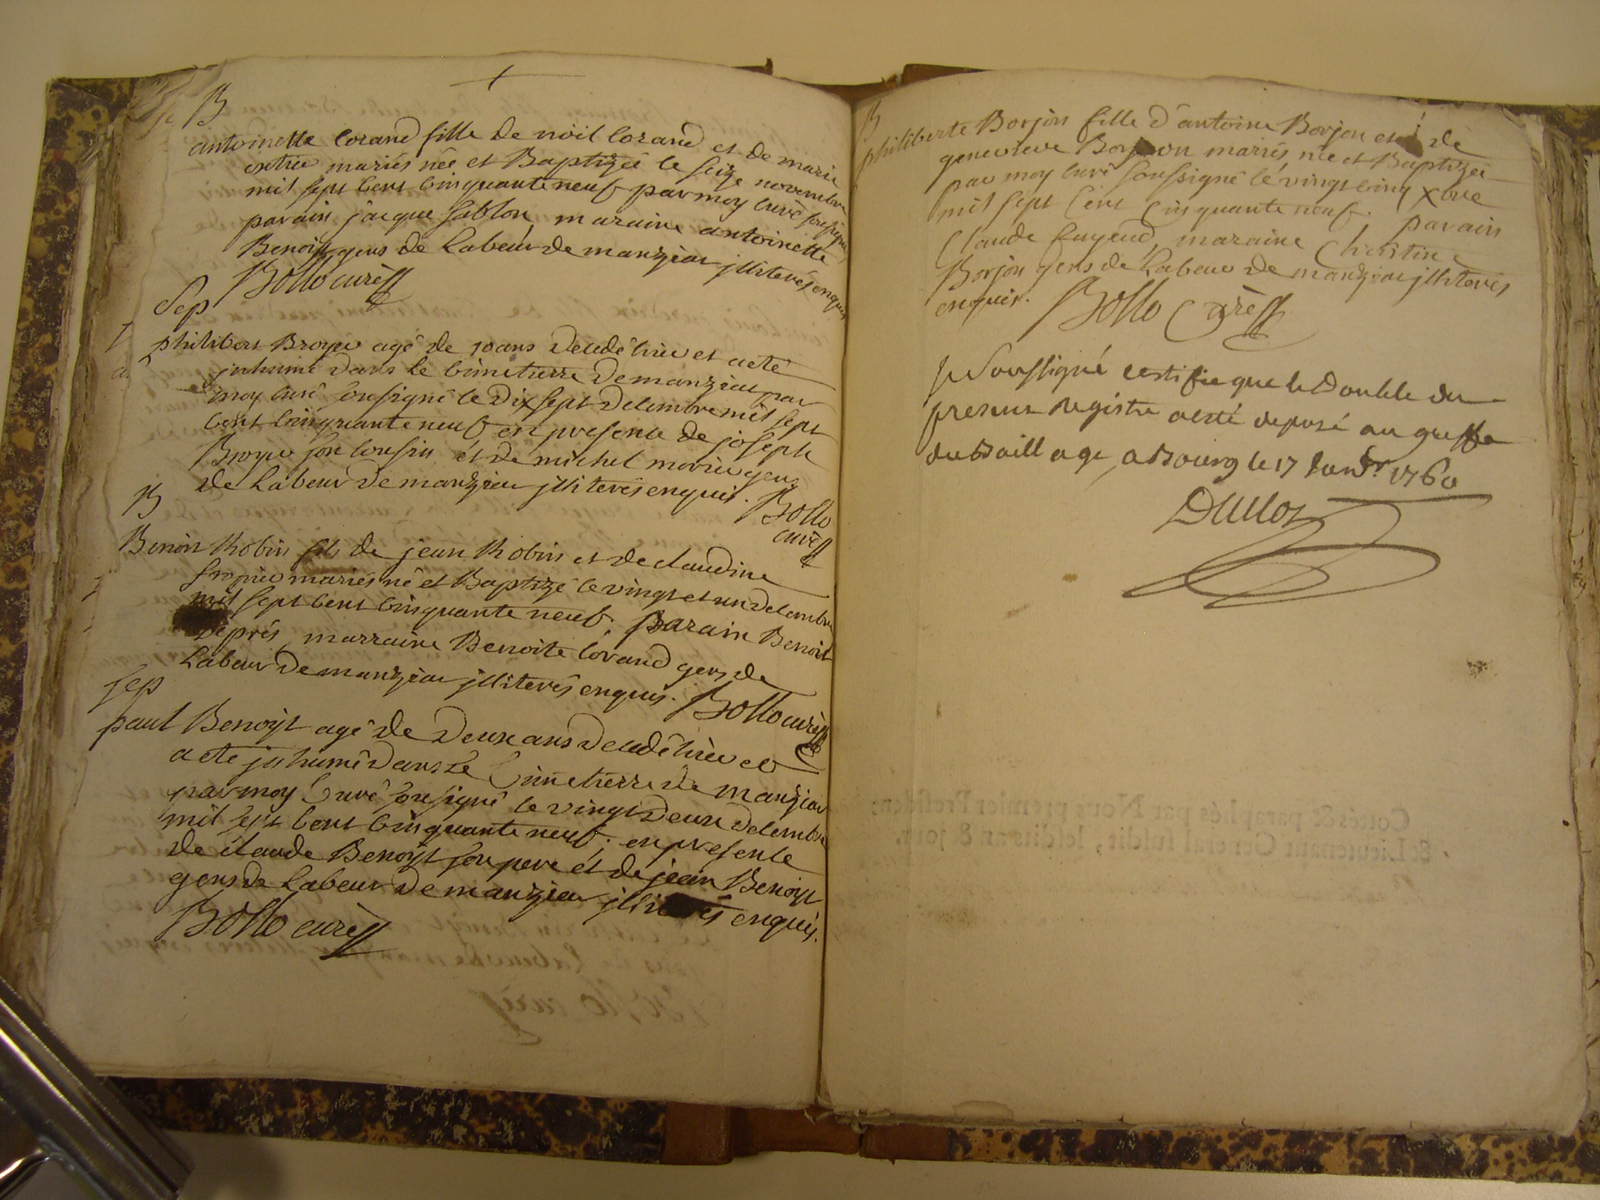 B
antoinette lorand fille de nöil lorand et de marie
mariés née et Baptizée le seize novembre
mil sept cent cinquante neuf par moy curé soussigné
parain jacque sablon maraine antoinette
Benoit gens de Labeur de manziat illiterés enquis
Bollo curé
Sep
philibert Broyer agé de 10 ans decedé hier et a eté
inhumé dans le cimetierre de manziat par
moy curé sousigné le Dix sept decembre mil sept
cent cinquante neuf en presence de joseph
Broyer son cousin et de michel gens
de Labeur de manziat illiterés enquis. Bollo
curé
B
Benoit Robin fils de jean Robin et de claudine
mariés né et Baptizé le vingt et un decembre
mil sept cent cinquante neuf. Parain Benoit
marraine Benoite lorand gens de
Labeur de manziat illiterés enquis. Bollo curé
sep
paul Benoÿt agé de Deux ans decedé hier et
a eté inhumé dans Le Cimetierre de manziat
par moy Curé sousigné le vingt deux decembre
mil sept cent cinquante neuf. en presence
de claude Benoÿt son pere et de jean Benoÿt
gens de Labeur de manziat illiterés enquis.
Bollo curé
B
philiberte Borjon fille d'antoine Borjon et de
genevieve Borjon mariés née et Baptizée
par moy curé soussigné le vingt cinq Xbre
mil sept cent cinquante neuf. parain
Claude maraine Christine
Borjon gens de Labeur de manziat illiterés
enquis. Bollo Curé
Je soussigné certifie que le Double du
present Registre a esté deposé au greffe
du Bailliage a Bourg le 17 Janvr 1760
Cottés & paraphés par Nous premier President
& Lieutenant General susdit, lesdits an & jour.